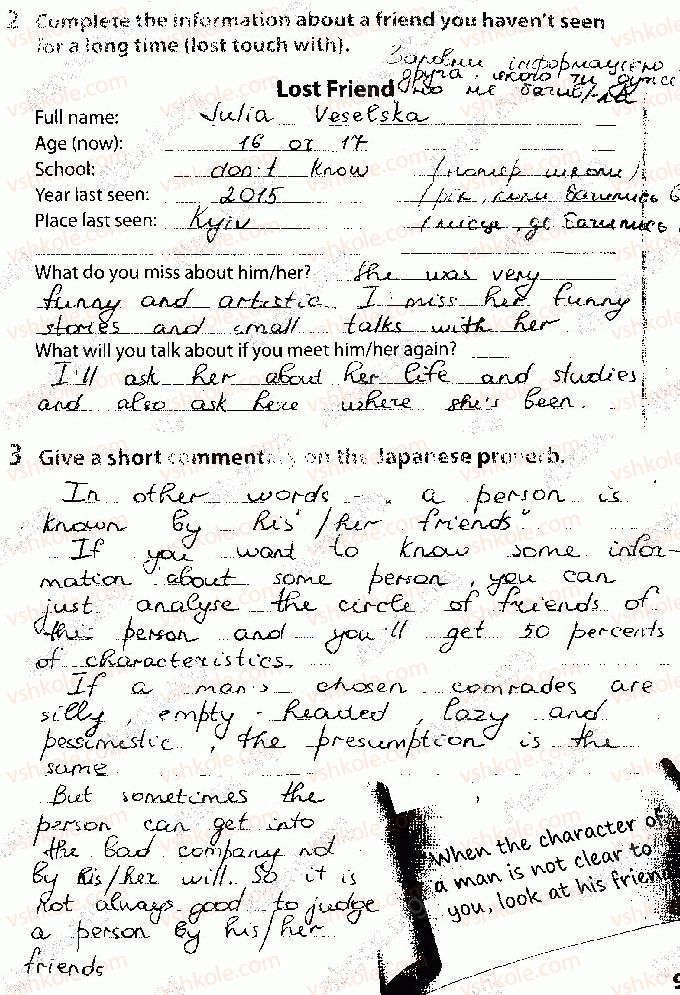 2 Complete the information about a friend you haven't seen
for a long time (lost touch with).
Заповни інформацією
друга, якого ти дуже
Lost Friend
Full name: Julia Veselska
Age (now): 16 or 17
School: don't know /номер школи/
Year last seen: 2015 /рік, коли бачились
Place last seen: Kyiv /місце, де бачились
What do you miss about him/her? She was very
funny and artistic. I miss her funny
stories and small talks with her
What will you talk about if you meet him/her again?
I'll ask her about her life and studies
and also ask here where she's been.
3 Give a short commentary on the Japanese proverb.
In other words - "a person is
known by his /her friends".
If you want to know some infor-
mation about some person, you can
just analyse the circle of friends of
this person and you'll get 50 percents
of characteristics.
If a man's chosen comrades are
silly, empty-headed, lazy and
pessimestic, the presumption is the
same.
But sometimes the
person can get into
the bad company not
by his/her will. So it is
not always good to judge
a person by his/her
friends
When the character of
a man is not clear to
you, look at his friend
9
vshkole.com